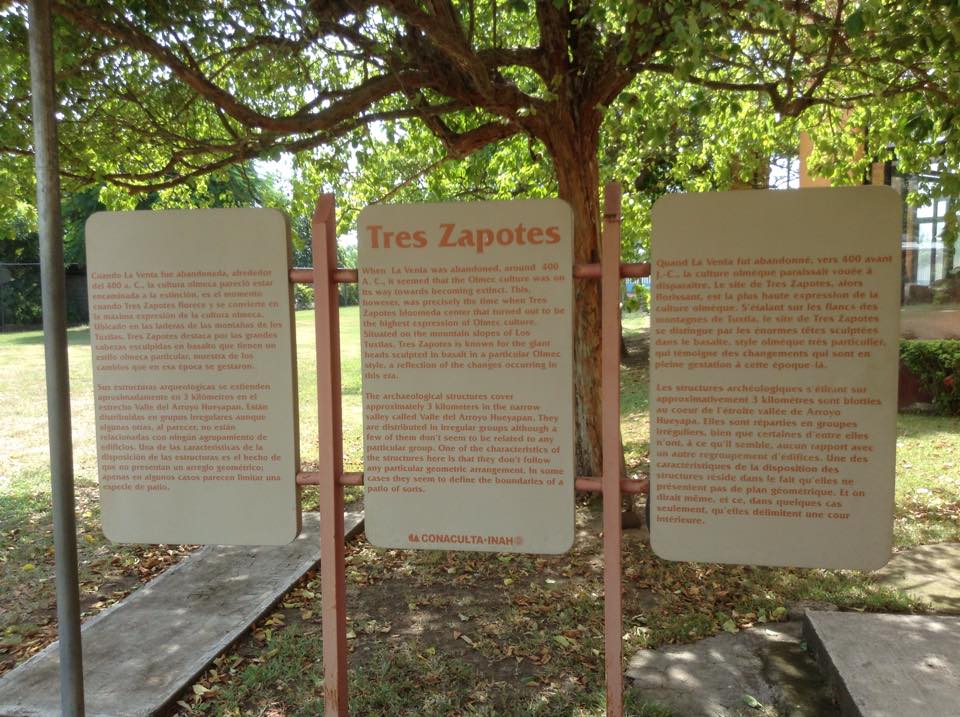 Cuando La Venta fue abandonada, alrededor
del 400 a. C., la cultura olmeca pareció estar
encaminada a la extinción, es el momento
cuando Tres Zapotes florece y se convierte en
la máxima expresión de la cultura olmeca.
Ubicado en las laderas de las montañas de los
Tuxtlas. Tres Zapotes destaca por las grandes
cabezas esculpidas en basalto que tienen un
estilo olmeca particular, muestra de los
cambios que en esa época se gestaron.
Sus estructuras arqueológicas se extienden
aproximadamente en 3 kilómetros en el
estrecho Valle del Arroyo Hueyapan. Están
distribuidas en grupos irregulares aunque
algunas otras, al parecer, no están
relacionadas con ningún agrupamiento de
edificios. Una de las características de la
disposición de las estructuras es el hecho de
que no presentan un arreglo geométrico;
apenas en algunos casos parecen limitar una
especie de patio.
Tres Zapotes
When La Venta was abandoned, around 400
A. C., it seemed that the Olmec culture was on
its way towards becoming extinct. This,
however, was precisely the time when Tres
Zapotes bloomeda center that turned out to be
the highest expression of Olmec culture.
Situated on the mountain slopes of Los
Tuxtlas, Tres Zapotes is known for the giant
heads sculpted in basalt in a particular Olmec
style, a reflection of the changes occurring in
this era.
The archaeological structures cover
approximately 3 kilometers in the narrow
valley called Valle del Arroyo Hueyapan. They
are distributed in irregular groups although a
few of them don't seem to be related to any
particular group. One of the characteristics of
the structures here is that they don't follow
any particular geometric arrangement. In some
cases they seem to define the boundaries of a
patio of sorts.
CONACULTA·INAH
Quand La Venta fut abandonné, vers 400 avant
J.-C., la culture olmèque paraissait vouée à
disparaître. Le site de Tres Zapotes, alors
florissant, est la plus haute expression de la
culture olmèque. S'élançant sur les flancs des
montagnes de Tuxtla, le site de Tres Zapotes
se distingue par les énormes têtes sculptées
dans le basalte, style olmèque très particulier,
qui témoigne des changements qui sont en
pleine gestation à cette époque-là.
Les structures archéologiques s'étirant sur
approximativement 3 kilomètres sont blotties
au coeur de l'étroite vallée de Arroyo
Hueyapa. Elles sont réparties en groupes
irréguliers, bien que certaines d'entre elles
n'ont, à ce qu'il semble, aucun rapport avec
un autre regroupement d'édifices. Une des
caractéristiques de la disposition des
structures réside dans le fait qu'elles ne
présentent pas de plan géométrique. Et on
dirait même, et ce, dans quelques cas
seulement, qu'elles délimitent une cour
intérieure.